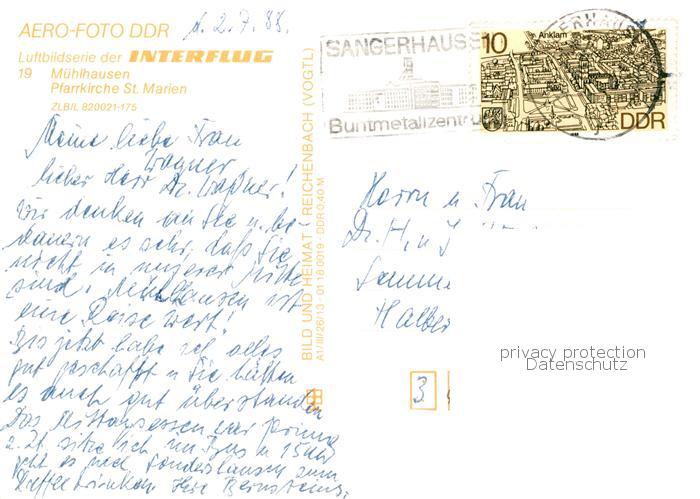 AERO-FOTO DDR
d. 2.7.88.
Luftbildserie der INTERFLUG
19 Mühlhausen
Pfarrkirche St. Marien
ZLB/L 820021-175
SANGERHAUSE
Buntmetallzentru
10 Anklam
DDR
BILD UND HEIMAT REICHENBACH (VOGTL)
A1/III/26/13 01 18 0019 DDR 0,40 M
Meine liebe Frau
Wagner
lieber Herr Dr. Wagner!
Wir denken an Sie u. be-
dauern es sehr, daß Sie
nicht in unserer Mitte
sind. Mühlhausen ist
eine Reise wert!
Bis jetzt habe ich alles
gut geschafft u. Sie hätten
es auch gut überstanden
Das Mittagessen war prima
z. Zt. sitze ich im Bus u. 15 Uhr
geht es nach Sondershausen zum
Kaffeetrinken Ihre Bernsteins.
Herrn u Frau
Dr. H. u. J
Halber
3
privacy protection
Datenschutz